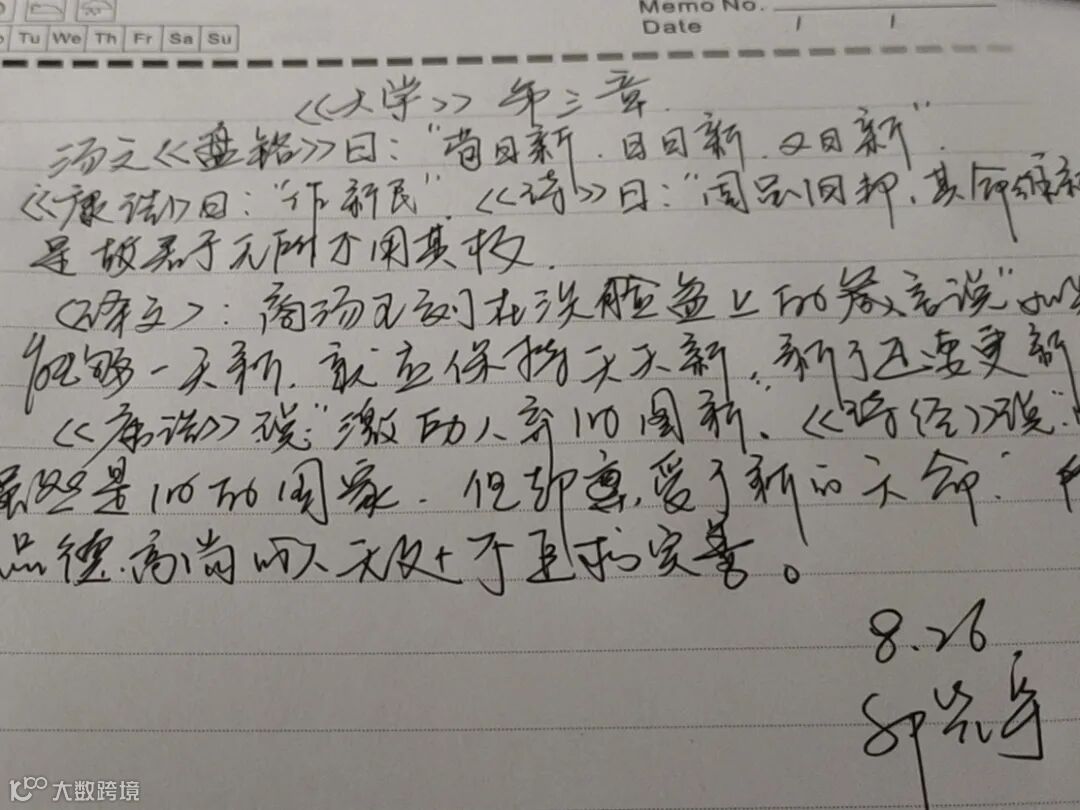 Memo No.
Date / /
Tu We Th Fr Sa Su
《大学》第三章.
汤之《盘铭》曰：“苟日新.日日新.又日新”.
《康诰》曰：“作新民”.《诗》曰：“周虽旧邦,其命维新
是故君子无所不用其极.
《译文》：商汤王刻在洗脸盆上的箴言说“如
能够一天新.就应保持天天新,新了还要更新
《康诰》说：“激励人弃旧图新”.《诗经》说：“
虽然是旧的国家.但却禀受了新的天命.”
品德高尚的人无处不追求完善。
8.26
大数跨境